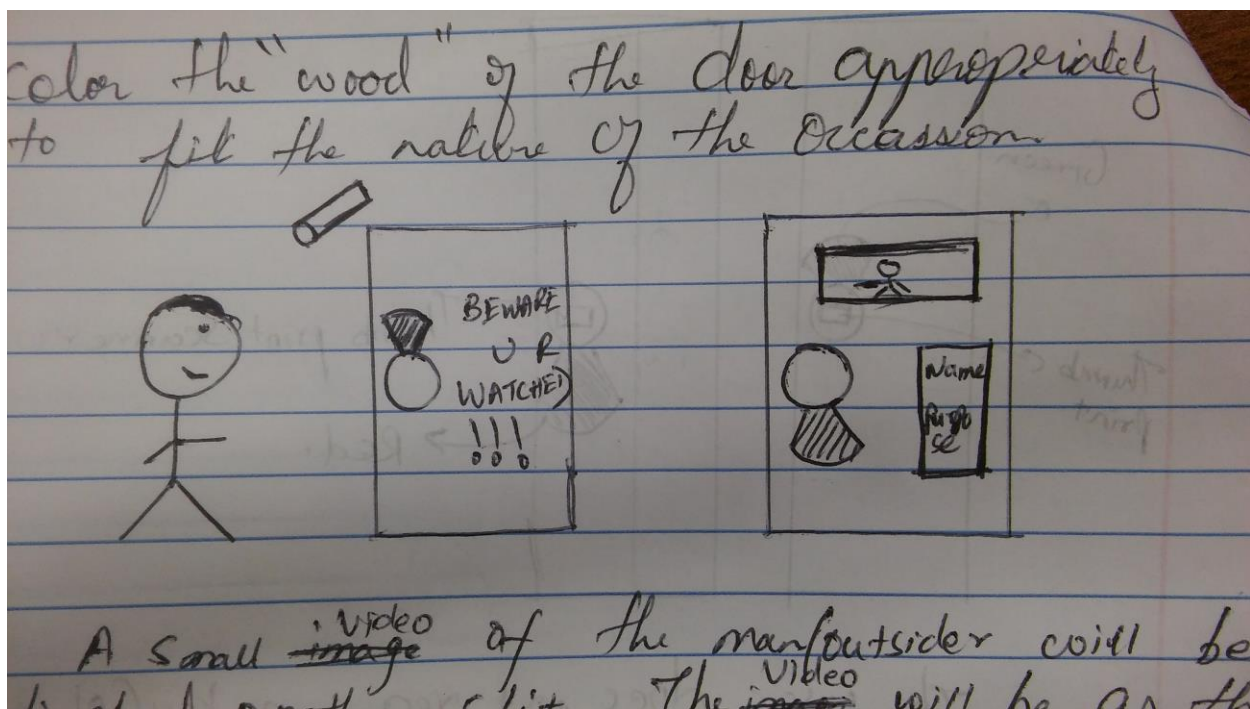 color the "wood" of the door appropriately
to fit the nature of the Occassion.
BEWARE
U R
WATCHED
!!!
Name
Purpo
se
A Small image video of the man/outsider will be
The image video will be as the